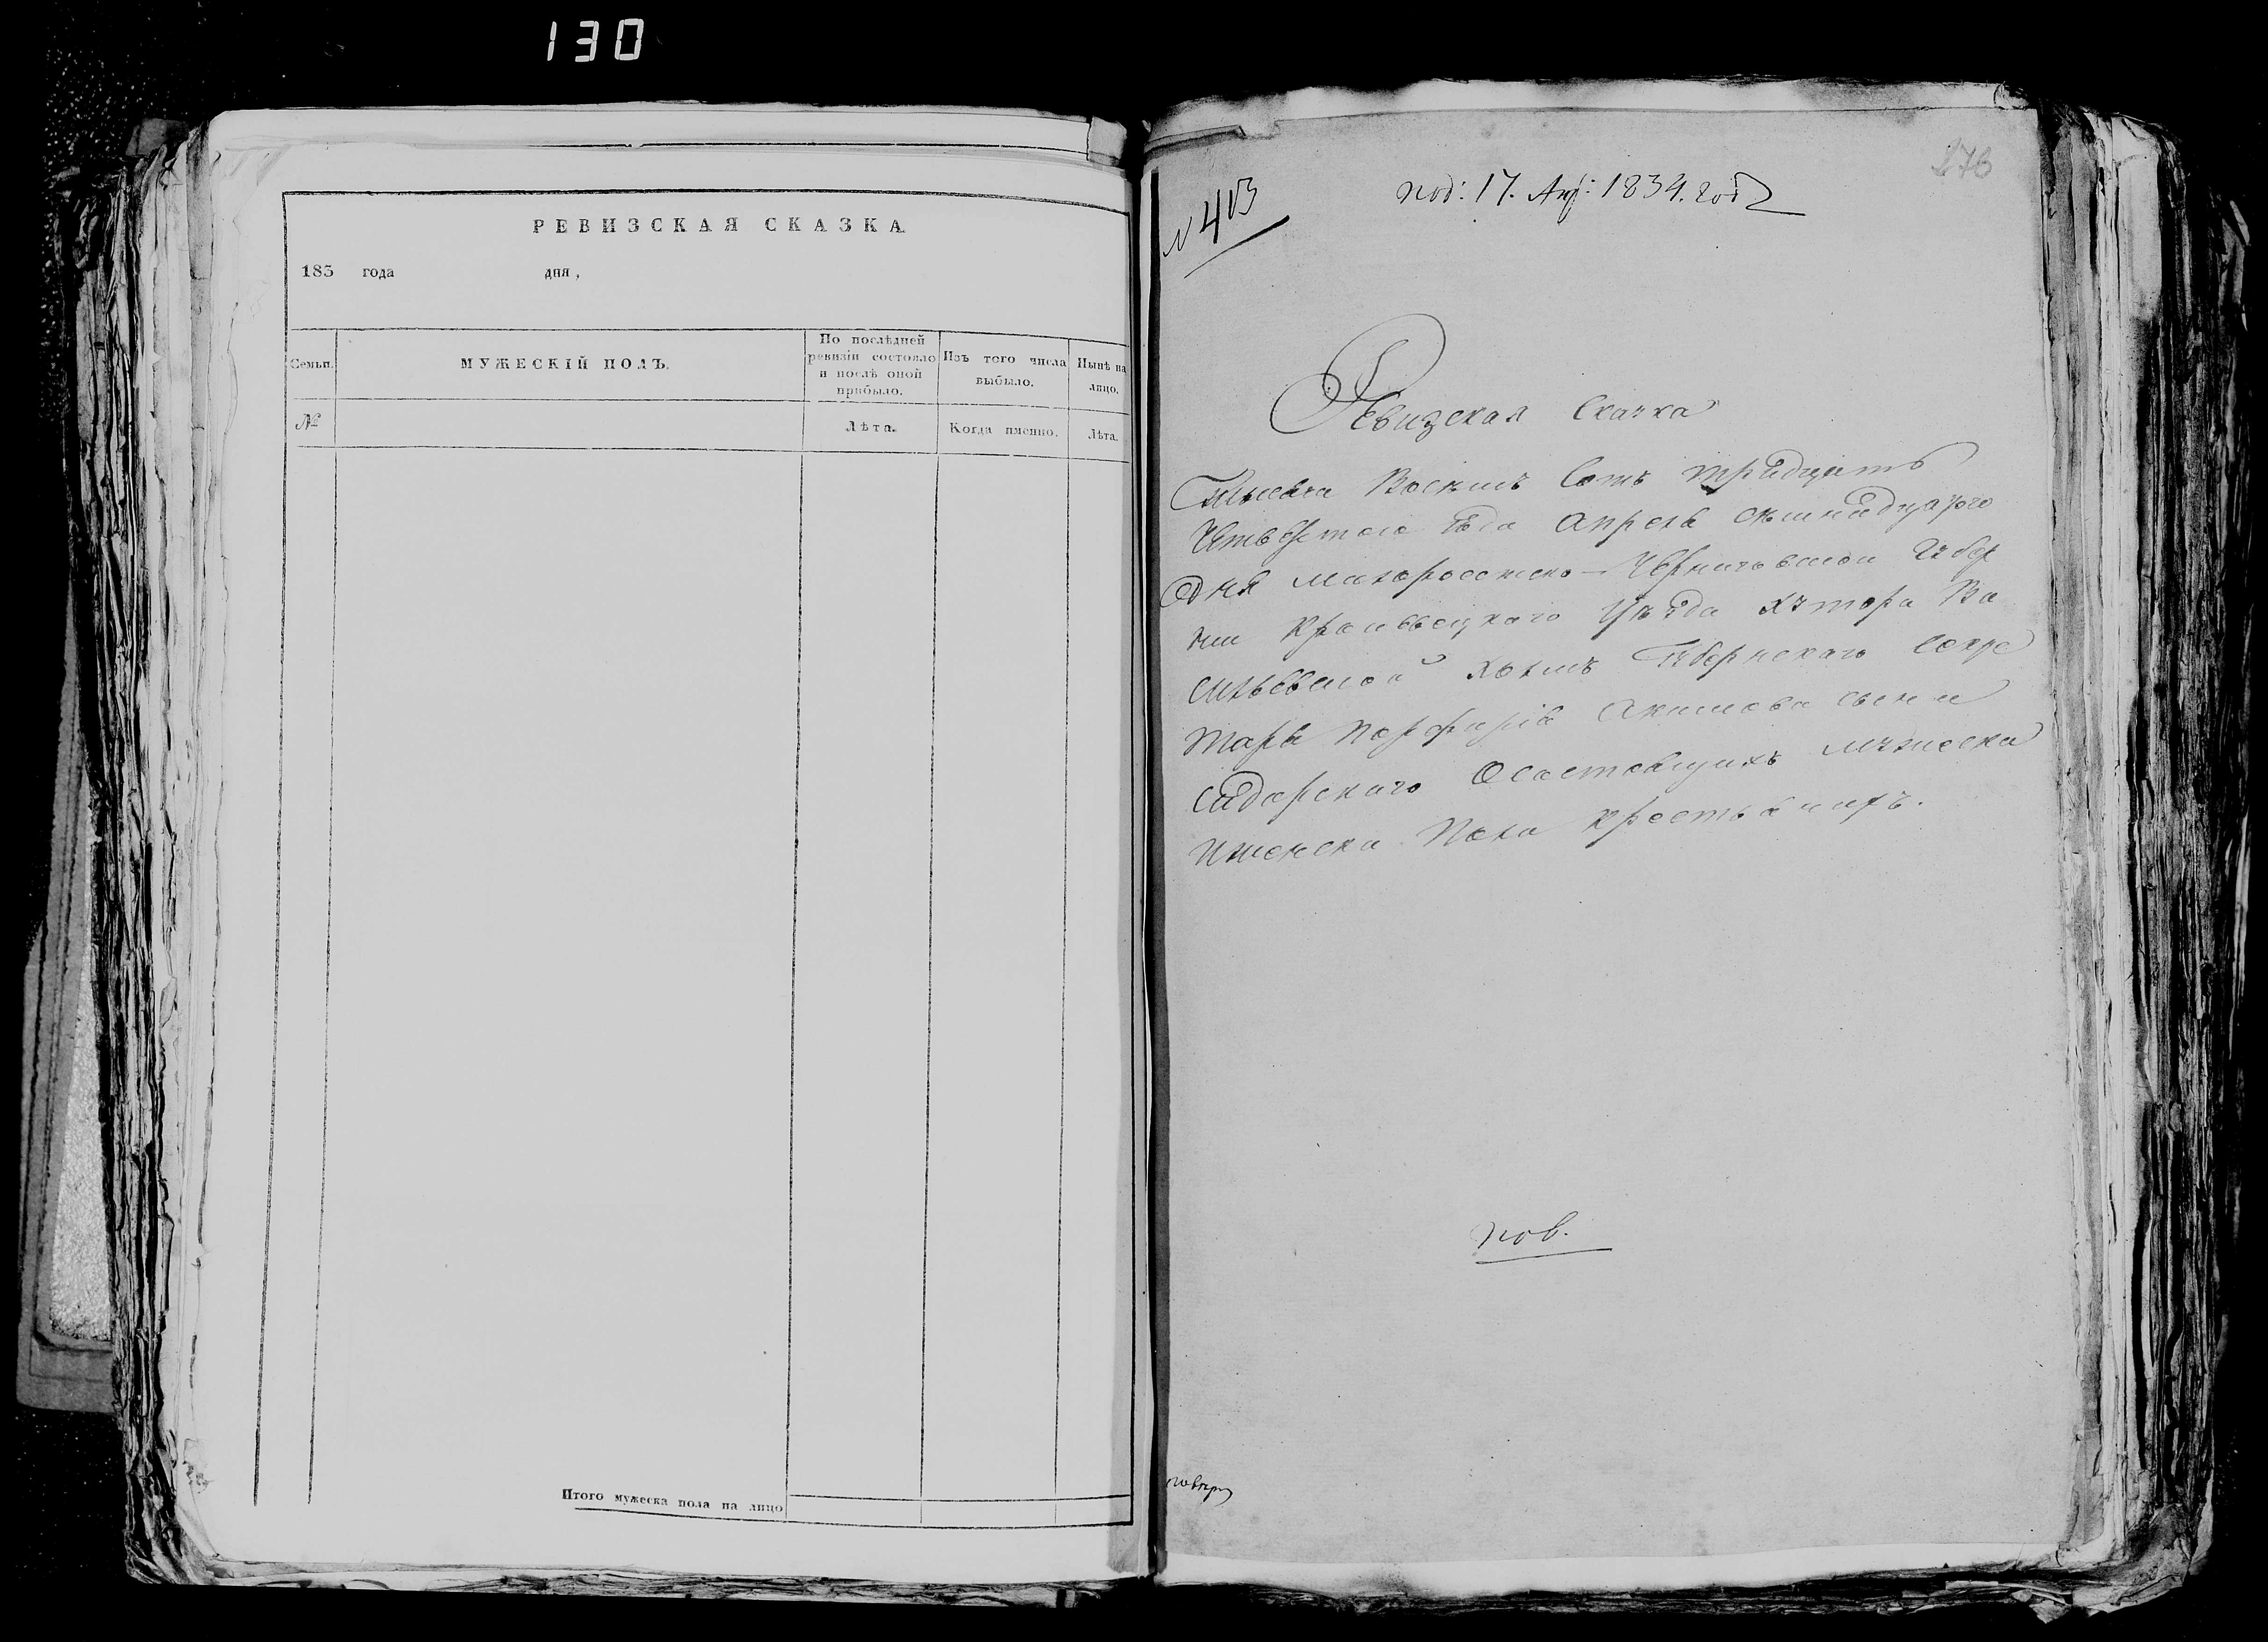 130
РЕВИЗСКАЯ СКАЗКА
183 года дня,
Семьи.
МУЖЕСКІЙ ПОЛЪ.
По послѣдней
ревизіи состояло
и послѣ оной
прибыло.
Изъ того числа
выбыло.
Нынѣ на
лицо.
№
Лѣта.
Когда именно.
Лѣта.
Итого мужеска пола на лицо
276
под: 17. Апр: 1834. год
Ревизская Сказка
Тысяча Восемъ Сотъ тридцать
Четвертого года Апреля семнадцатого
дня Малоросійско-Черниговской Губер
ніи Кролевецкаго уезда хутора Ва
сильевской холмъ Губернскаго Секре
таря Порфирія Акимова сына
Сидорскаго О состоящихъ мужеска
и женска Пола крестьянахъ.
пов.